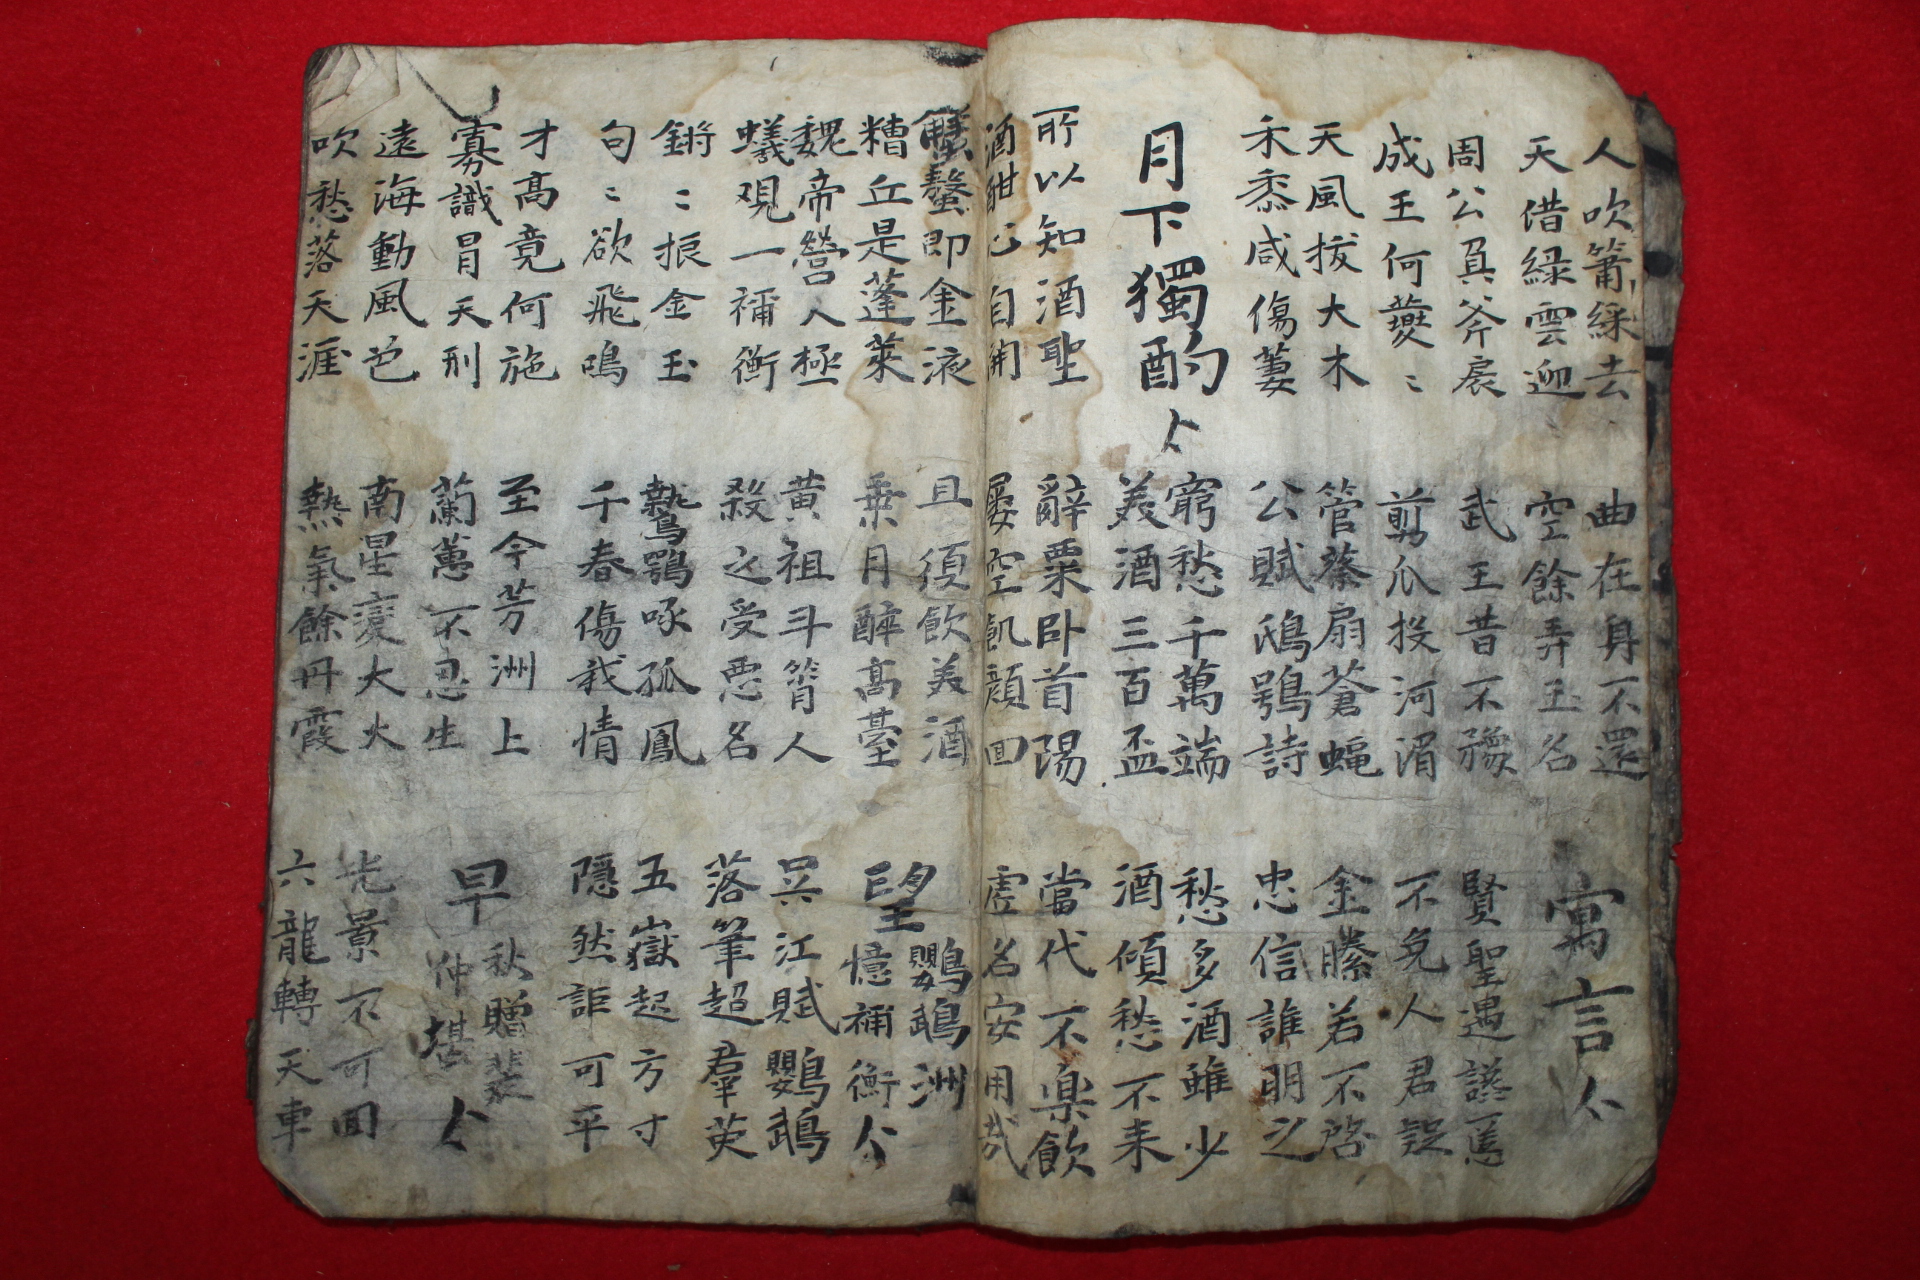 人吹簫綵去
天借綠雲迎
曲在身不還
空餘弄玉名
寓言
周公負斧扆
成王何夔〻
武王昔不豫
剪爪投河湄
賢聖遇讒慝
不免人君疑
天風拔大木
禾黍咸傷萋
管蔡扇蒼蠅
公賦鴟鴞詩
金縢若不啓
忠信誰明之
月下獨酌
窮愁千萬端
美酒三百盃
愁多酒雖少
酒傾愁不来
所以知酒聖
酒酣心自開
辭粟卧首陽
屢空飢顔回
當代不樂飲
虛名安用哉
蟹螯即金液
糟丘是蓬萊
且須飲美酒
乗月醉高臺
望鸚鵡洲
憶禰衡
魏帝營八極
蟻覌一禰衡
黃祖斗筲人
殺之受悪名
吳江賦鸚鵡
落筆超羣英
鏘〻振金玉
句〻欲飛鳴
鷙鶚啄孤鳳
千春傷我情
五嶽起方寸
隱然詎可平
才高竟何施
寡識冒天刑
至今芳洲上
蘭蕙不忍生
早秋贈裴
仲堪
遠海動風色
吹愁落天涯
南星变大火
熱氣餘丹霞
光景不可回
六龍轉天車